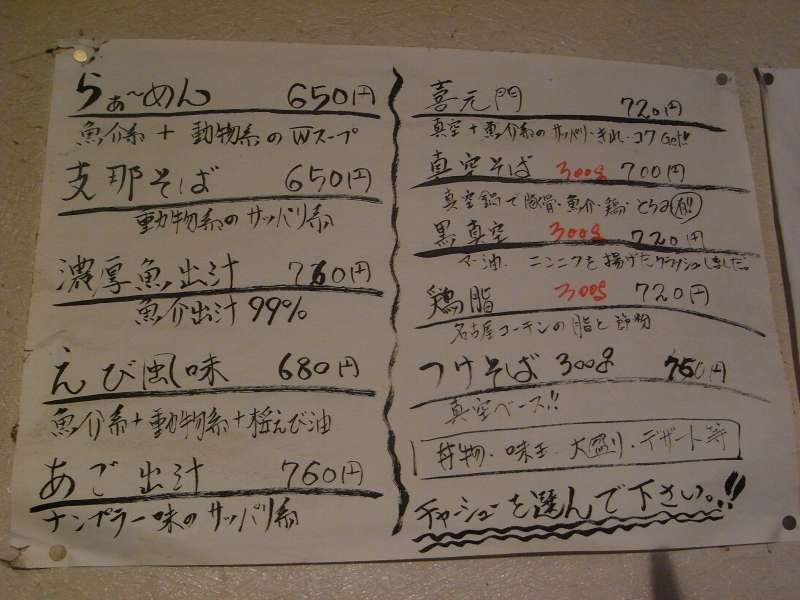 らぁ〜めん 650円
魚介系+動物系のWスープ
支那そば 650円
動物系のサッパリ系
濃厚魚出汁 760円
魚介出汁99%
えび風味 680円
魚介系+動物系+桜えび油
あご出汁 760円
ナンプラー味のサッパリ系
喜元門 720円
真空+魚介系のサッパリ・きれ・コクGet!!
真空そば 300g 700円
真空鍋で豚骨・魚介・鶏 とろみ有!!
黒真空 300g 720円
マー油、ニンニクを揚げたクラッシュしました。
鶏脂 300g 720円
名古屋コーチンの脂と節粉
つけそば 300g 750円
真空ベース!!
丼物・味玉・大盛り・デザート等
チャーシューを選んで下さい。!!